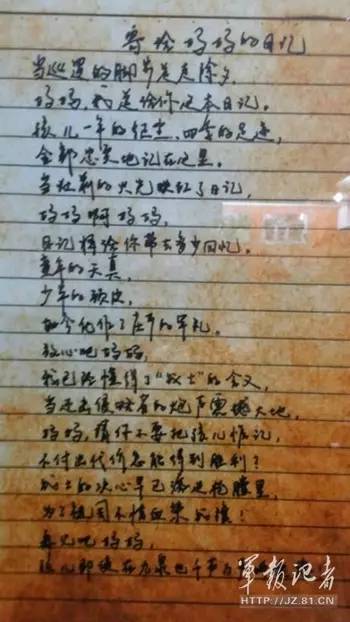 寄给妈妈的日记
当巡逻的脚步走走除夕,
妈妈,我送给你这本日记。
孩儿一年的征尘,四季的足迹,
全部忠实地记在这里。
当壮丽的火光映红了日记,
妈妈啊妈妈,
日记将给你带去多少回忆。
童年的天真,
少年的顽皮,
如今化作了庄严的军礼。
放心吧妈妈,
我已经懂得了“战士”的含义,
当还击侵略者的炮声震撼大地,
妈妈,请你不要把孩儿惦记,
不付出代价怎能得到胜利?
战士的决心早已涂进枪膛里,
为了祖国不惜血染的
再见吧妈妈,
孩儿即使在九泉也千声
軍報記者
HTTP://JZ.81.CN